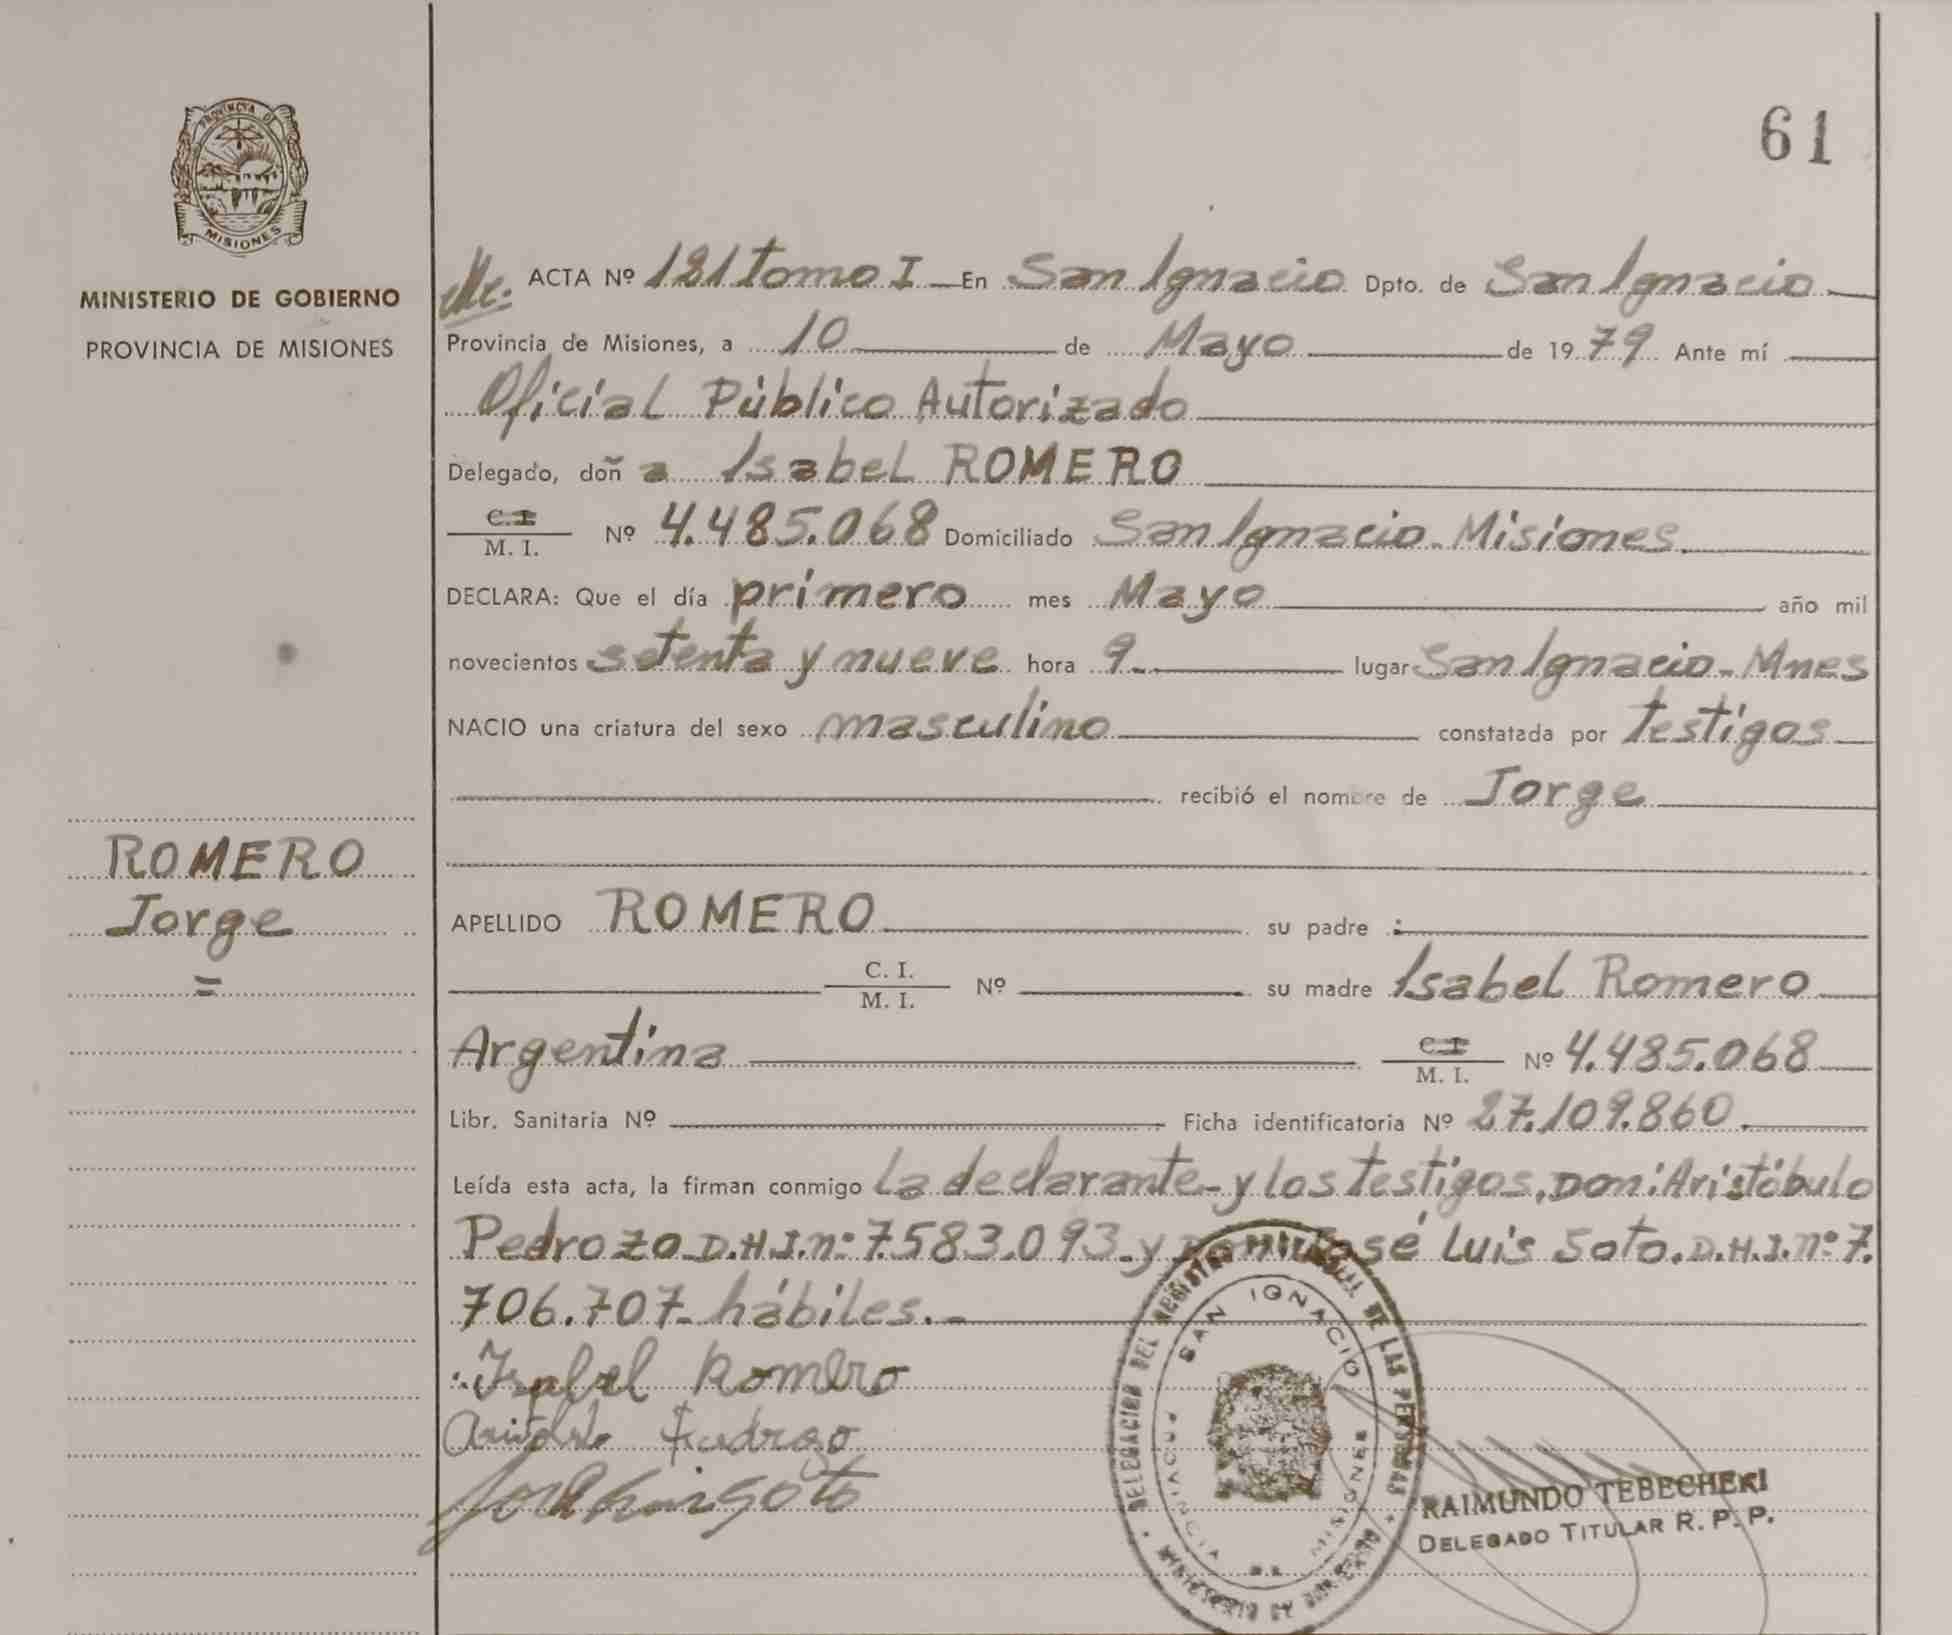 PROVINCIA DE
MISIONES
MINISTERIO DE GOBIERNO
PROVINCIA DE MISIONES
ROMERO
Jorge
=
61
ACTA Nº 121 tomo I En San Ignacio Dpto. de San Ignacio
Provincia de Misiones, a 10 de Mayo de 1979 Ante mí
Oficial Público Autorizado
Delegado, doña Isabel ROMERO
C. I. / M. I. Nº 4.485.068 Domiciliado San Ignacio - Misiones.
DECLARA: Que el día primero mes Mayo año mil
novecientos setenta y nueve hora 9. lugar San Ignacio - Mnes
NACIO una criatura del sexo masculino constatada por testigos
recibió el nombre de Jorge
APELLIDO ROMERO su padre :
C. I. / M. I. Nº su madre Isabel Romero
Argentina C. I. / M. I. Nº 4.485.068
Libr. Sanitaria Nº Ficha identificatoria Nº 27.109.860.
Leída esta acta, la firman conmigo la declarante - y los testigos, Don: Aristóbulo
Pedrozo D.H.I. nº 7.583.093 - y José Luis Soto. D.H.I. nº 7.
706.707 - hábiles. -
Isabel Romero
Pedrozo
Jose Luis Soto
DELEGACION DEL REGISTRO DE LAS PERSONAS
SAN IGNACIO
PROVINCIA DE MISIONES
RAIMUNDO TEBECHERI
DELEGADO TITULAR R. P. P.